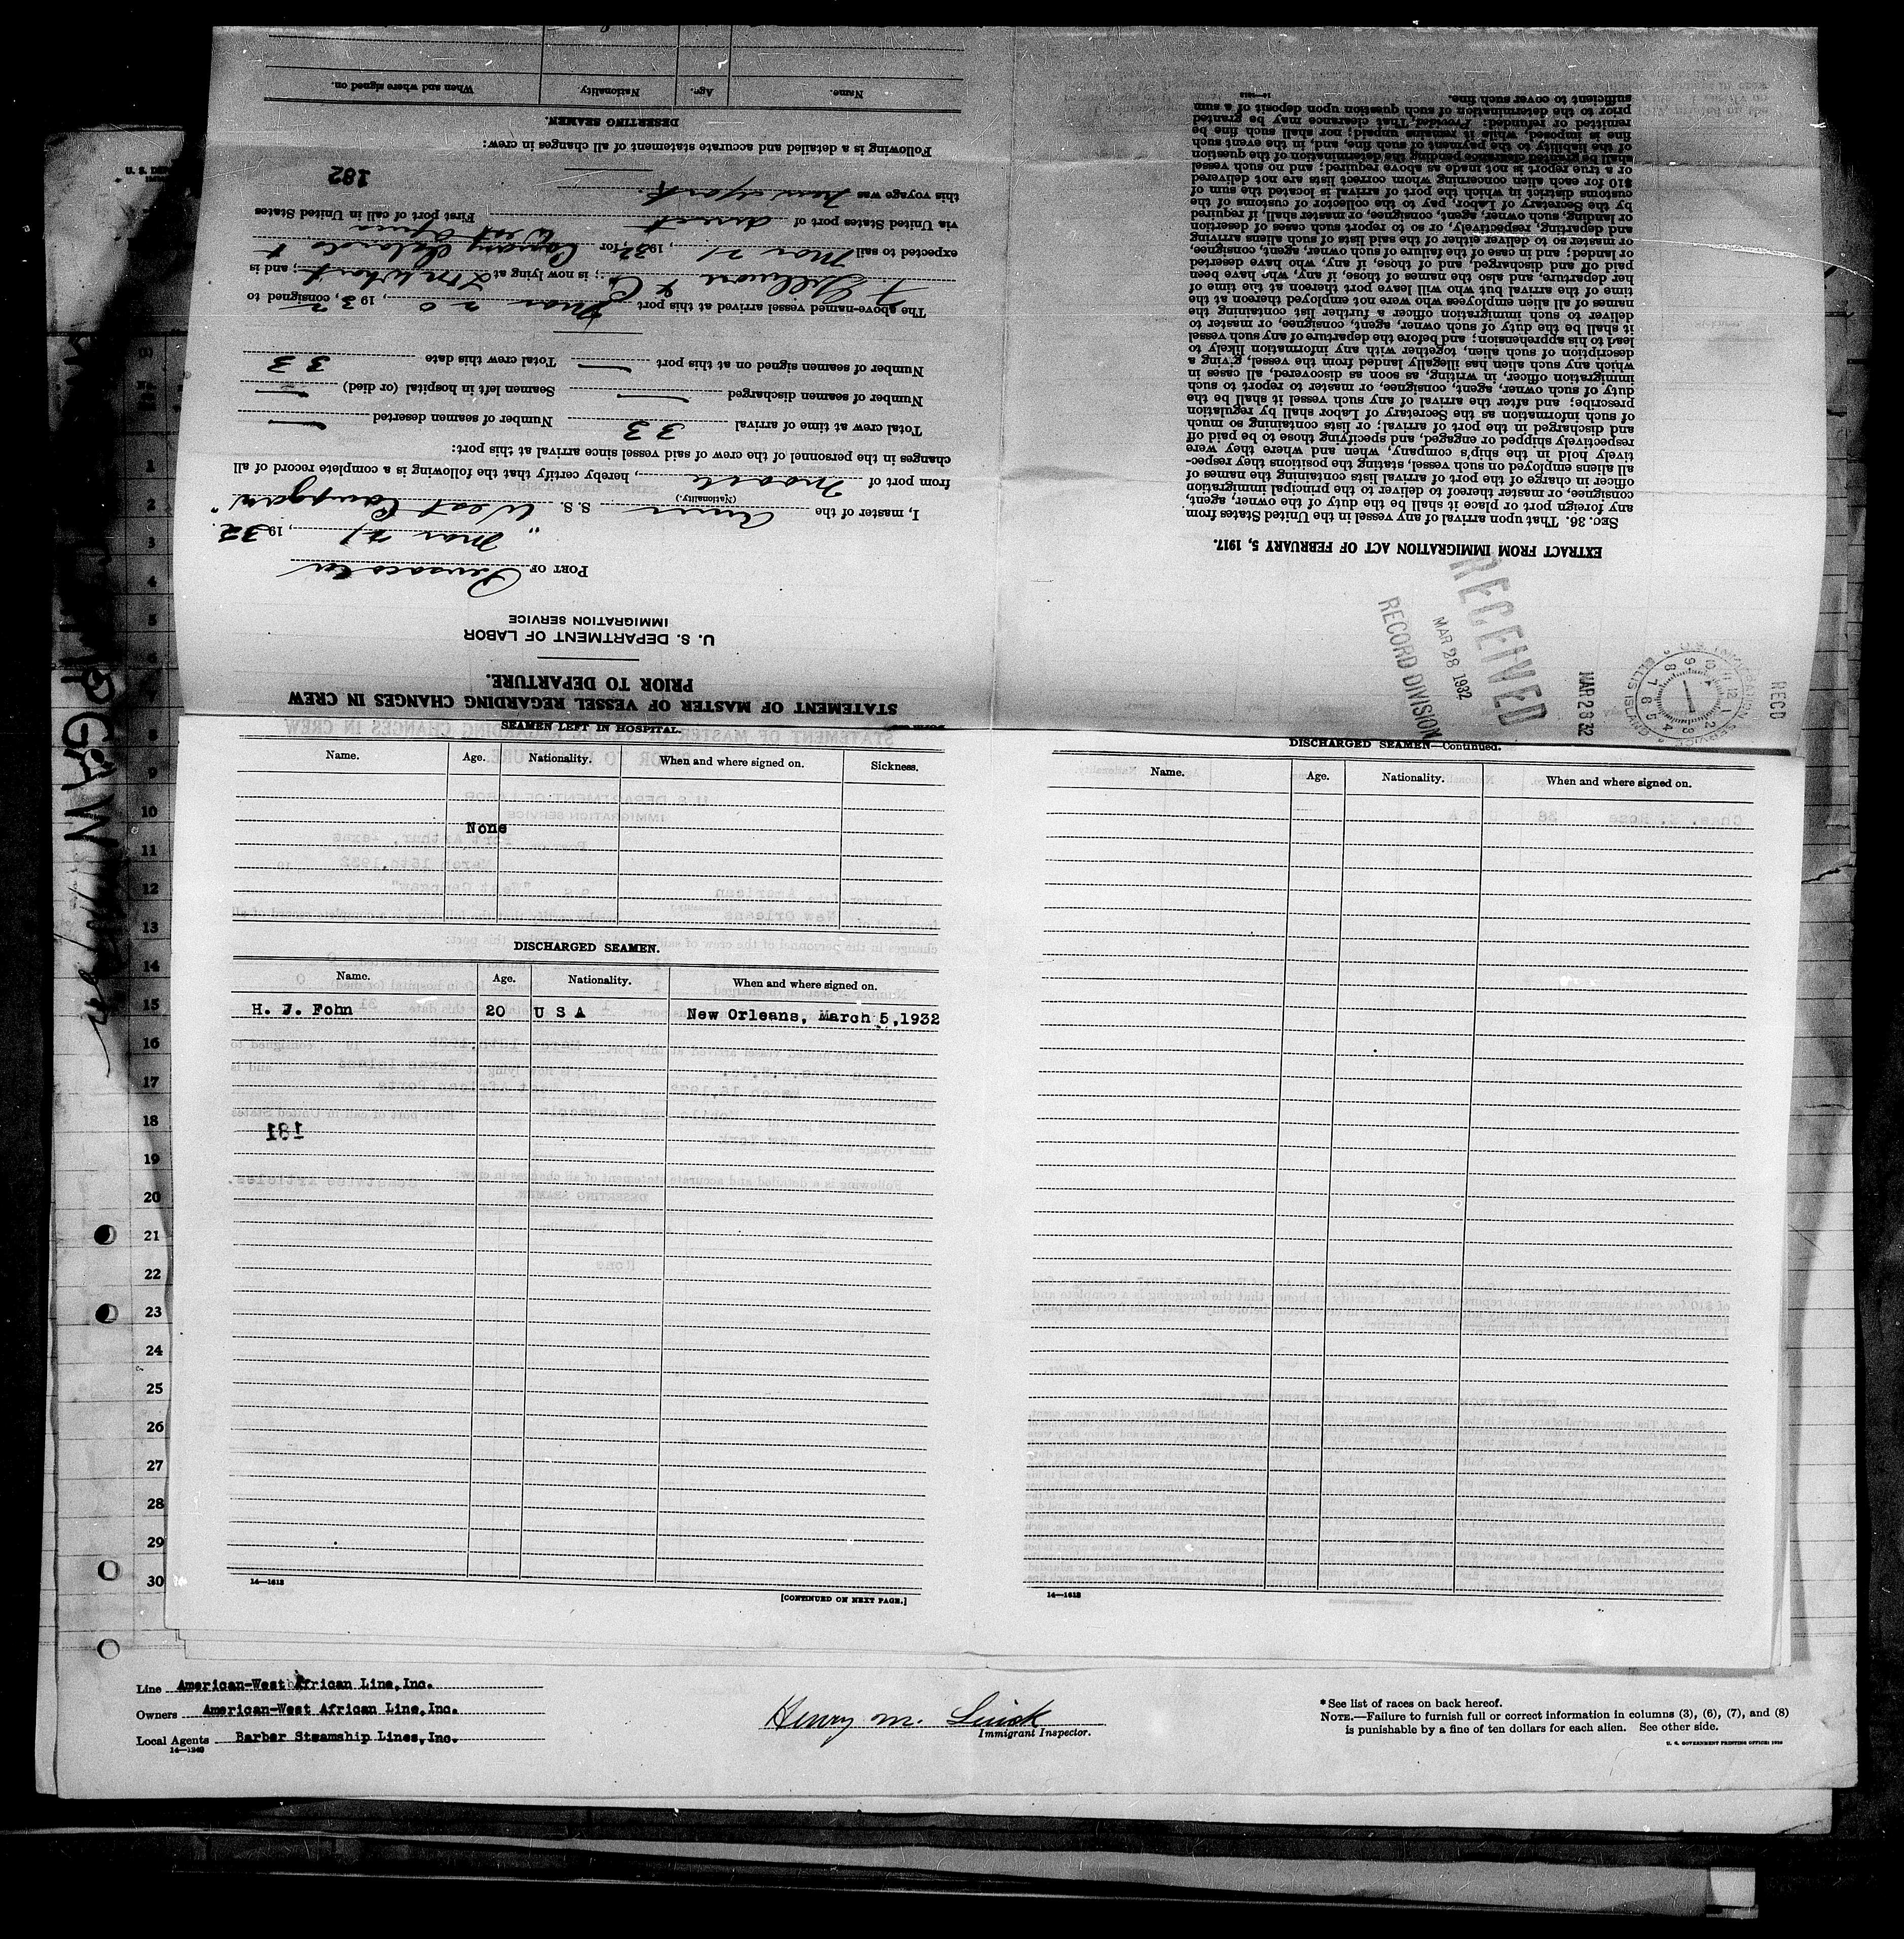 STATEMENT OF MASTER OF VESSEL REGARDING CHANGES IN CREW
PRIOR TO DEPARTURE.
U. S. DEPARTMENT OF LABOR
IMMIGRATION SERVICE
PORT OF Pensacola
Mar 21, 1932.
I, master of the Amer S. S. "West Campgaw"
(Nationality.)
from port of Mobile, hereby certify that the following is a complete record of all
changes in the personnel of the crew of said vessel since arrival at this port:
Total crew at time of arrival 33 Number of seamen deserted —
Number of seamen discharged — Seamen left in hospital (or died) —
Number of seamen signed on at this port — Total crew this date 33
The above-named vessel arrived at this port Mar 20, 1932, consigned to
Gillmore & Co; is now lying at wharf, and is
expected to sail Mar 21, 1932, for Canary Islands +
West Africa
via United States port of direct First port of call in United States
this voyage was New York.
182
Following is a detailed and accurate statement of all changes in crew:
DESERTING SEAMEN.
Name. Age. Nationality. When and where signed on.
RECD
U.S. IMMIGRATION SERVICE ELLIS ISLAND
MAR 28 32
RECEIVED
MAR 28 1932
RECORD DIVISION
EXTRACT FROM IMMIGRATION ACT OF FEBRUARY 5, 1917.
SEC. 36. That upon arrival of any vessel in the United States from
any foreign port or place it shall be the duty of the owner, agent,
consignee, or master thereof to deliver to the principal immigration
officer in charge of the port of arrival lists containing the names of
all aliens employed on such vessel, stating the positions they respec-
tively hold in the ship's company, when and where they were
respectively shipped or engaged, and specifying those to be paid off
and discharged in the port of arrival; or lists containing so much
of such information as the Secretary of Labor shall by regulation
prescribe; and after the arrival of any such vessel it shall be the
duty of such owner, agent, consignee, or master to report to such
immigration officer, in writing, as soon as discovered, all cases in
which any such alien has illegally landed from the vessel, giving a
description of such alien, together with any information likely to
lead to his apprehension; and before the departure of any such vessel
it shall be the duty of such owner, agent, consignee, or master to
deliver to such immigration officer a further list containing the
names of all alien employees who were not employed thereon at the
time of the arrival but who will leave port thereon at the time of
her departure, and also the names of those, if any, who have been
paid off and discharged, and of those, if any, who have deserted
or landed; and in case of the failure of such owner, agent, consignee,
or master so to deliver either of the said lists of such aliens arriving
and departing, respectively, or so to report such cases of desertion
or landing, such owner, agent, consignee, or master shall, if required
by the Secretary of Labor, pay to the collector of customs of the
customs district in which the port of arrival is located the sum of
$10 for each alien concerning whom correct lists are not delivered
or a true report is not made as above required; and no such vessel
shall be granted clearance pending the determination of the question
of the liability to the payment of such fine, and, in the event such
fine is imposed, while it remains unpaid; nor shall such fine be
remitted or refunded: Provided, That clearance may be granted
prior to the determination of such question upon deposit of a sum
sufficient to cover such fine.
SEAMEN LEFT IN HOSPITAL.
Name. Age. Nationality. When and where signed on. Sickness.
None
DISCHARGED SEAMEN.
Name. Age. Nationality. When and where signed on.
H. J. Fohn 20 U S A New Orleans, March 5,1932
181
14—1613
[CONTINUED ON NEXT PAGE.]
DISCHARGED SEAMEN—Continued.
Name. Age. Nationality. When and where signed on.
14—1613
1
2
3
4
5
6
7
8
9
10
11
12
13
14
15
16
17
18
19
20
21
22
23
24
25
26
27
28
29
30
Line American-West African Line,Inc.
Owners American-West African Line,Inc.
Local Agents Barber Steamship Lines,Inc.
14—1240
Henry M.
Immigrant Inspector.
* See list of races on back hereof.
NOTE.—Failure to furnish full or correct information in columns (3), (6), (7), and (8)
is punishable by a fine of ten dollars for each alien. See other side.
U. S. GOVERNMENT PRINTING OFFICE: